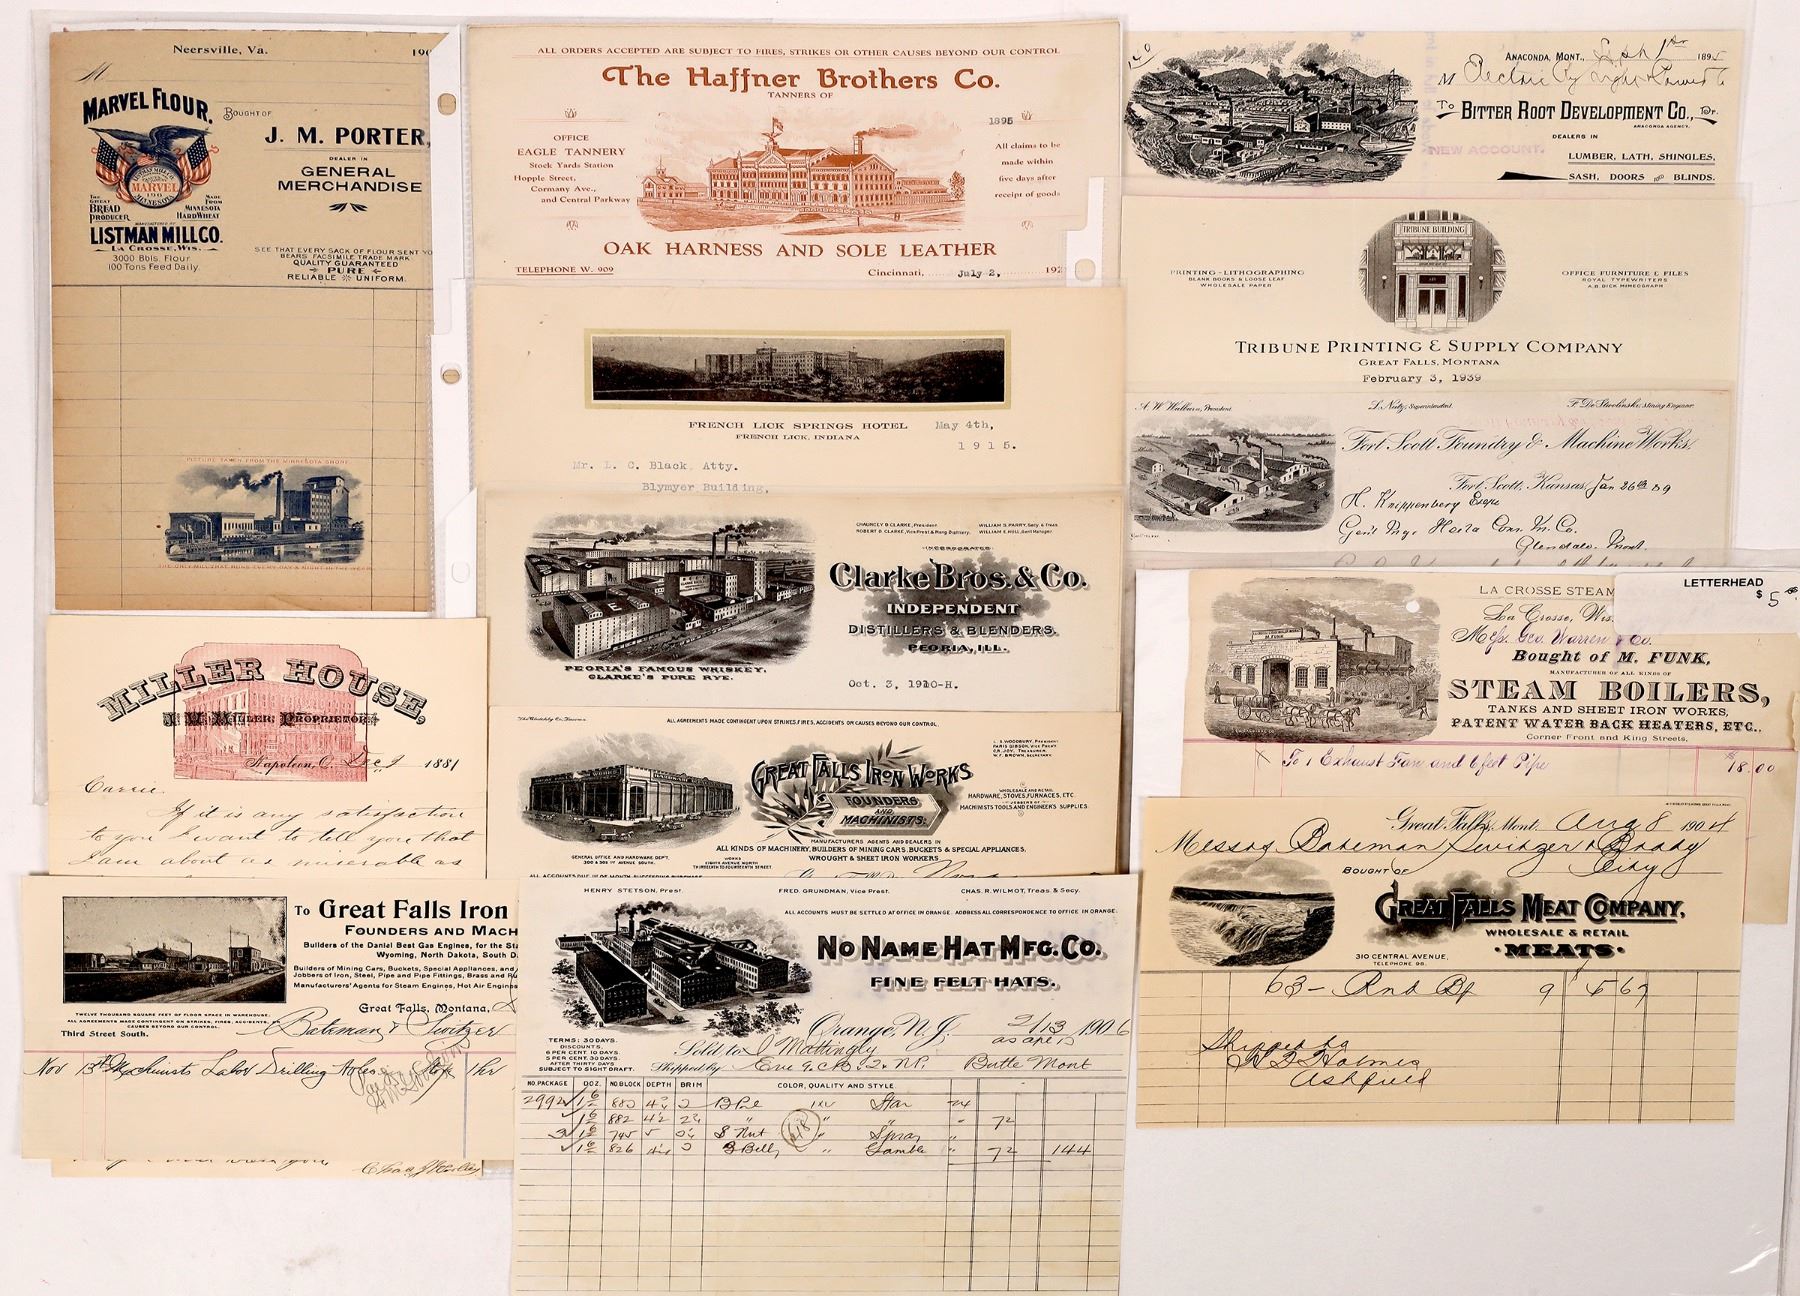 Neersville, Va.
190
M
MARVEL FLOUR.
MARVEL
THE GREAT BREAD PRODUCER
MADE FROM MINNESOTA HARD WHEAT
MANUFACTURED BY
LISTMAN MILL CO.
LA CROSSE, WIS.
3000 Bbls. Flour
100 Tons Feed Daily.
BOUGHT OF
J. M. PORTER,
DEALER IN
GENERAL
MERCHANDISE
SEE THAT EVERY SACK OF FLOUR SENT YO
BEARS FACSIMILE TRADE MARK
QUALITY GUARANTEED
PURE
RELIABLE UNIFORM.
PICTURE TAKEN FROM THE MINNESOTA SHORE
THE ONLY MILL THAT RUNS EVERY DAY & NIGHT IN THE YEAR
ALL ORDERS ACCEPTED ARE SUBJECT TO FIRES, STRIKES OR OTHER CAUSES BEYOND OUR CONTROL
The Haffner Brothers Co.
TANNERS OF
OFFICE
EAGLE TANNERY
Stock Yards Station
Hopple Street,
Cormany Ave.,
and Central Parkway
1895
All claims to be
made within
five days after
receipt of goods
OAK HARNESS AND SOLE LEATHER
TELEPHONE W. 909
Cincinnati, July 2, 192
FRENCH LICK SPRINGS HOTEL
FRENCH LICK, INDIANA
May 4th,
1915.
Mr. L. C. Black, Atty.
Blymyer Building,
CHAUNCEY D. CLARKE, President
ROBERT D. CLARKE, Vice Prest & Mang. Distillery.
WILLIAM S. PARRY, Secy. & Treas.
WILLIAM E. HULL, Gen'l Manager.
INCORPORATED
Clarke Bros. & Co.
INDEPENDENT
DISTILLERS & BLENDERS.
PEORIA, ILL.
PEORIA'S FAMOUS WHISKEY.
CLARKE'S PURE RYE.
Oct. 3, 1910-H.
ALL AGREEMENTS MADE CONTINGENT UPON STRIKES, FIRES, ACCIDENTS OR CAUSES BEYOND OUR CONTROL.
GREAT FALLS IRON WORKS
FOUNDERS
AND
MACHINISTS.
L. S. WOODBURY, PRESIDENT
PARIS GIBSON, VICE PRES'T
C. R. JOY, TREASURER
W. F. BROWN, SECRETARY.
WHOLESALE AND RETAIL
HARDWARE, STOVES, FURNACES, ETC.
JOBBERS OF
MACHINISTS TOOLS AND ENGINEER'S SUPPLIES.
MANUFACTURERS AGENTS AND DEALERS IN
ALL KINDS OF MACHINERY, BUILDERS OF MINING CARS, BUCKETS & SPECIAL APPLIANCES,
WROUGHT & SHEET IRON WORKERS
GENERAL OFFICE AND HARDWARE DEPT.
300 & 302 1ST AVENUE SOUTH.
WORKS
EIGHTH AVENUE NORTH
THIRTEENTH TO FOURTEENTH STREET.
MILLER HOUSE,
J. W. MILLER, PROPRIETOR
Napoleon, O. Dec 9 1881
Carrie.
If it is any satisfaction
to you I want to tell you that
I am about as miserable as
To Great Falls Iron
FOUNDERS AND MACH
Builders of the Danial Best Gas Engines, for the Sta
Wyoming, North Dakota, South D
Builders of Mining Cars, Buckets, Special Appliances, and
Jobbers of Iron, Steel, Pipe and Pipe Fittings, Brass and Ru
Manufacturers' Agents for Steam Engines, Hot Air Engines
Great Falls, Montana,
TWELVE THOUSAND SQUARE FEET OF FLOOR SPACE IN WAREHOUSE.
ALL AGREEMENTS MADE CONTINGENT ON STRIKES, FIRES, ACCIDENTS OR
CAUSES BEYOND OUR CONTROL.
Third Street South.
Bateman & Switzer
Nov 13th Machinists Labor Drilling Holes 1 hr
HENRY STETSON, Prest.
FRED. GRUNDMAN, Vice Prest.
CHAS. R. WILMOT, Treas. & Secy.
ALL ACCOUNTS MUST BE SETTLED AT OFFICE IN ORANGE. ADDRESS ALL CORRESPONDENCE TO OFFICE IN ORANGE.
NO NAME HAT MFG. CO.
FINE FELT HATS.
Orange, N.J. 2/13 1906
as of apr 15
TERMS: 30 DAYS.
DISCOUNTS.
6 PER CENT. 10 DAYS.
5 PER CENT. 30 DAYS.
AFTER THIRTY DAYS
SUBJECT TO SIGHT DRAFT.
Sold to J Mattingly
Shipped by Butte Mont
NO. PACKAGE DOZ. NO. BLOCK DEPTH BRIM COLOR, QUALITY AND STYLE.
2992 Star
882 72
3 745 5 Nut Spray
826 Belly Gamble 72 144
ANACONDA, MONT., 1895
M Electric Ry Light & Power Co
To BITTER ROOT DEVELOPMENT CO., Dr.
ANACONDA AGENCY.
DEALERS IN
NEW ACCOUNT.
LUMBER, LATH, SHINGLES,
SASH, DOORS AND BLINDS.
TRIBUNE BUILDING
PRINTING - LITHOGRAPHING
BLANK BOOKS & LOOSE LEAF
WHOLESALE PAPER
OFFICE FURNITURE & FILES
ROYAL TYPEWRITERS
A.B. DICK MIMEOGRAPH
TRIBUNE PRINTING & SUPPLY COMPANY
GREAT FALLS, MONTANA
February 3, 1939
A. W. Walburn, President.
L. Nutz, Superintendent.
F. De Stwolinski, Mining Engineer.
Fort Scott Foundry & Machine Works.
Fort Scott, Kansas, Jan 26th 89
H. Knippenberg Esqr
Gen'l Mgr. Hecla Con. M. Co.
Glendale. Mont.
LETTERHEAD
$ 5
LA CROSSE STEAM
La Crosse, Wis.
Mess. Geo. Warren & Co.
Bought of M. FUNK,
MANUFACTURER OF ALL KINDS OF
STEAM BOILERS,
TANKS AND SHEET IRON WORKS,
PATENT WATER BACK HEATERS, ETC.,
Corner Front and King Streets,
To 1 Exhaust Fan and 6 feet Pipe $18.00
Great Falls, Mont. Aug 8 1904
Messrs Bateman Switzer & Brady
City
BOUGHT OF
GREAT FALLS MEAT COMPANY,
WHOLESALE & RETAIL
MEATS
310 CENTRAL AVENUE,
TELEPHONE 98.
63 - Rnd Bf 9 5 67
Shipped to
Holmes
Ashfield